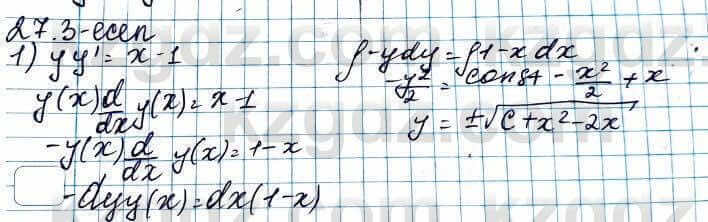 27.3-есеп
1) yy' = x - 1
y(x) d/dx y(x) = x - 1
-y(x) d/dx y(x) = 1 - x
-dyy(x) = dx(1-x)
∫-ydy = ∫1-x dx
-y²/2 = const - x²/2 + x
y = ±√(C + x² - 2x)